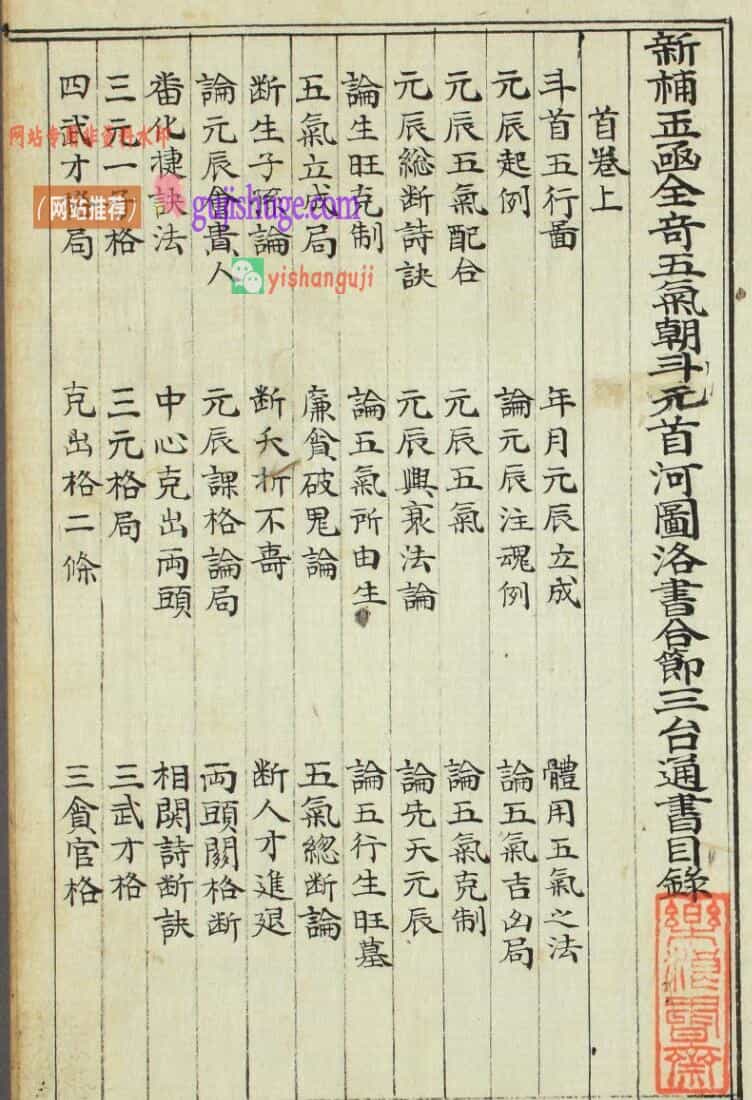 新補正函全奇五氣朝斗元首河圖洛書合節三台通書目錄
首卷上
斗首五行啚 年月元辰立成 體用五氣之法
元辰起例 論元辰注魂例 論五氣吉凶局
元辰五氣配合 元辰五氣 論五氣克制
元辰総断詩訣 元辰興衰法論 論先天元辰
論生旺克制 論五氣所由生 論五行生旺墓
五氣立成局 廉貪破鬼論 五氣總断論
断生子孫論 断夭折不壽 断人才進退
論元辰會貴人 元辰課格論局 両頭闘格断
畨化捷訣法 中心克出両頭 相関詩断訣
三元一格 三元格局 三武才格
四武才局 克出格二條 三貪官格
网站专用非资料水印
(网站推荐)
gujishuge.com
yishanguji